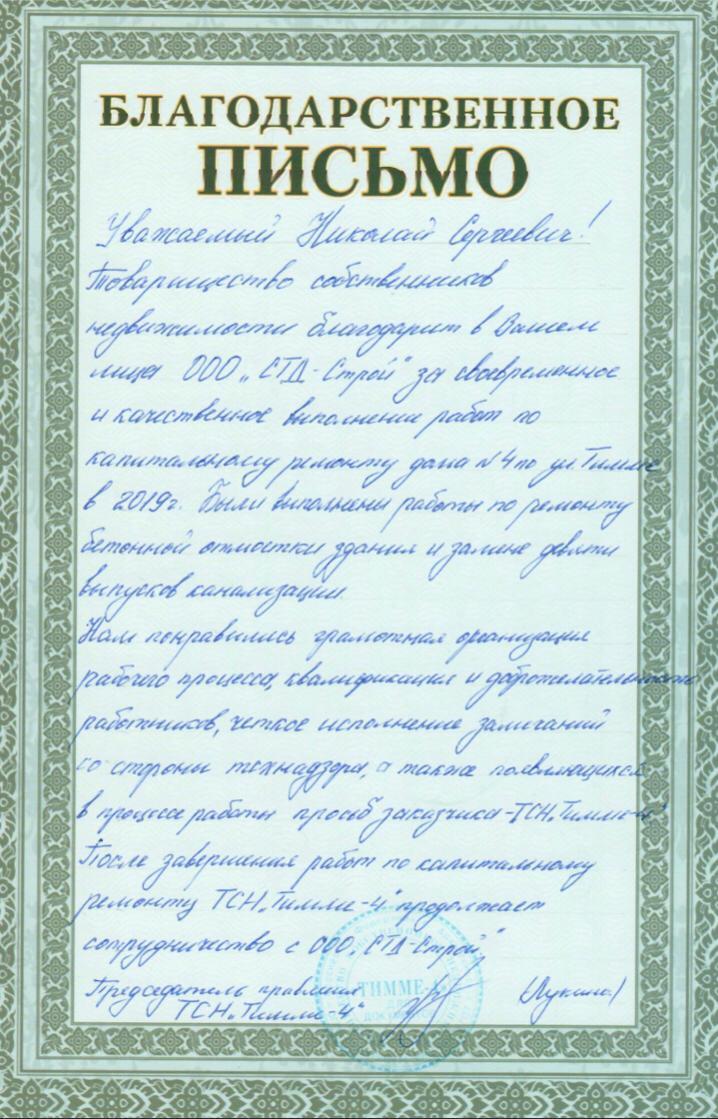 БЛАГОДАРСТВЕННОЕ
ПИСЬМО
Уважаемый Николай Сергеевич!
Товарищество собственников
недвижимости благодарит в Вашем
лице ООО „СТД-Строй" за своевременное
и качественное выполнение работ по
капитальному ремонту дома №4 по ул. Тимме
в 2019г. Были выполнены работы по ремонту
бетонной отмостки здания и замене девяти
выпусков канализации.
Нам понравились грамотная организация
рабочего процесса, квалификация и доброжелательность
работников, четкое исполнение замечаний
со стороны технадзора, а также появляющихся
в процессе работы просьб заказчика - ТСН „Тимме-4"
После завершения работ по капитальному
ремонту ТСН „Тимме-4" продолжает
сотрудничество с ООО „СТД-Строй"
Председатель правления
ТСН „Тимме-4"
(Лукина)
ТИММЕ-4
ДЛЯ
ДОКУМЕНТОВ